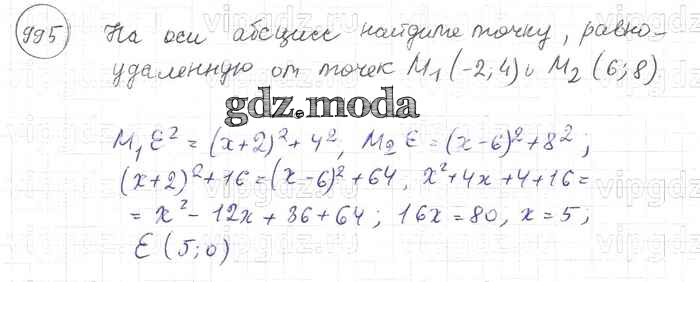 995 На оси абсцисс найдите точку, равно-
удаленную от точек M₁(-2;4) и M₂(6;8)
gdz.moda
M₁E² = (x+2)²+4², M₂E = (x-6)²+8²;
(x+2)²+16=(x-6)²+64, x²+4x+4+16=
= x²- 12x + 36+64; 16x=80, x=5;
E (5;0)